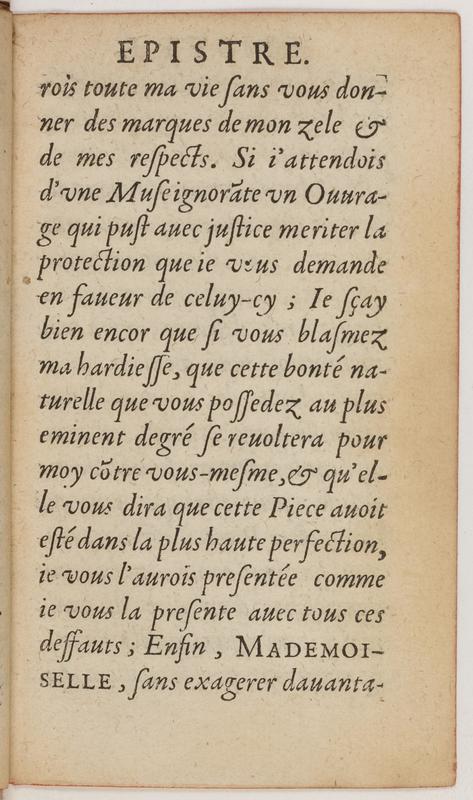 EPISTRE.
rois toute ma vie ſans vous don-
ner des marques de mon zele &
de mes reſpects. Si i'attendois
d'vne Muſe ignorãte vn Ouura-
ge qui puſt auec juſtice meriter la
protection que ie vous demande
en faueur de celuy-cy ; Ie ſçay
bien encor que ſi vous blaſmez
ma hardieſſe, que cette bonté na-
turelle que vous poſſedez au plus
eminent degré ſe reuoltera pour
moy cõtre vous-meſme, & qu'el-
le vous dira que cette Piece auoit
eſté dans la plus haute perfection,
ie vous l'aurois preſentée comme
ie vous la preſente auec tous ces
deffauts ; Enfin , MADEMOI-
SELLE , ſans exagerer dauanta-